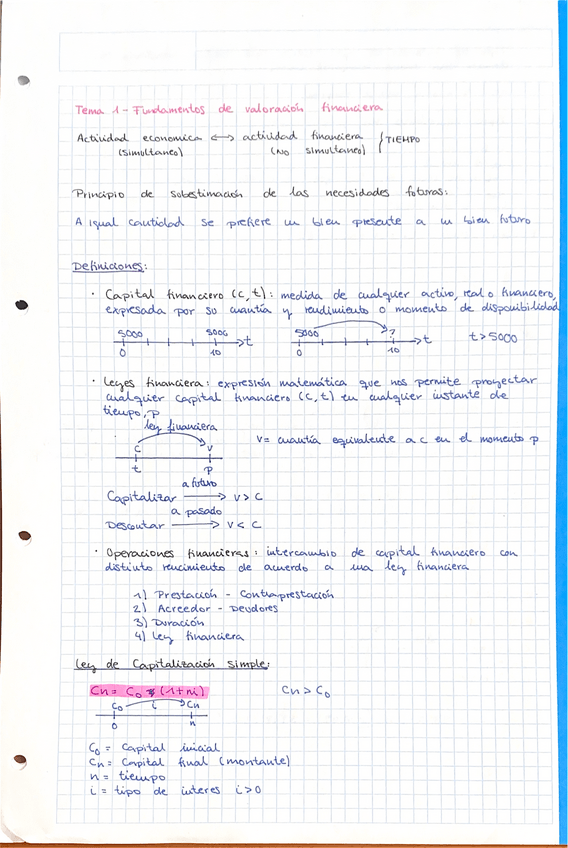 Tema 1 - Fundamentos de valoración financiera
Actividad economica <-> actividad financiera { TIEMPO
(simultaneo) (No simultaneo)
Principio de subestimación de las necesidades futuras:
A igual cantidad se prefiere un bien presente a un bien futuro
Definiciones:
· Capital financiero (C, t): medida de cualquier activo, real o financiero,
expresada por su cuantía y rendimiento o momento de disponibilidad
5000 5000 t 5000 ? t t > 5000
0 10 0 10
· Leyes financiera: expresión matemática que nos permite proyectar
cualquier capital financiero (C, t) en cualquier instante de
tiempo, p
ley financiera
C V V = cuantía equivalente a C en el momento p
t p
a futuro
Capitalizar → V > C
a pasado
Descontar → V < C
· Operaciones financieras: intercambio de capital financiero con
distinto vencimiento de acuerdo a una ley financiera
1) Prestación - Contraprestación
2) Acreedor - Deudores
3) Duración
4) Ley financiera
Ley de Capitalización simple:
Cn = C0 (1+ni) Cn > C0
C0 i Cn
0 n
C0 = Capital inicial
Cn = Capital final (montante)
n = tiempo
i = tipo de interes i>0